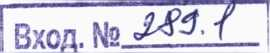 Вход. № 289.1